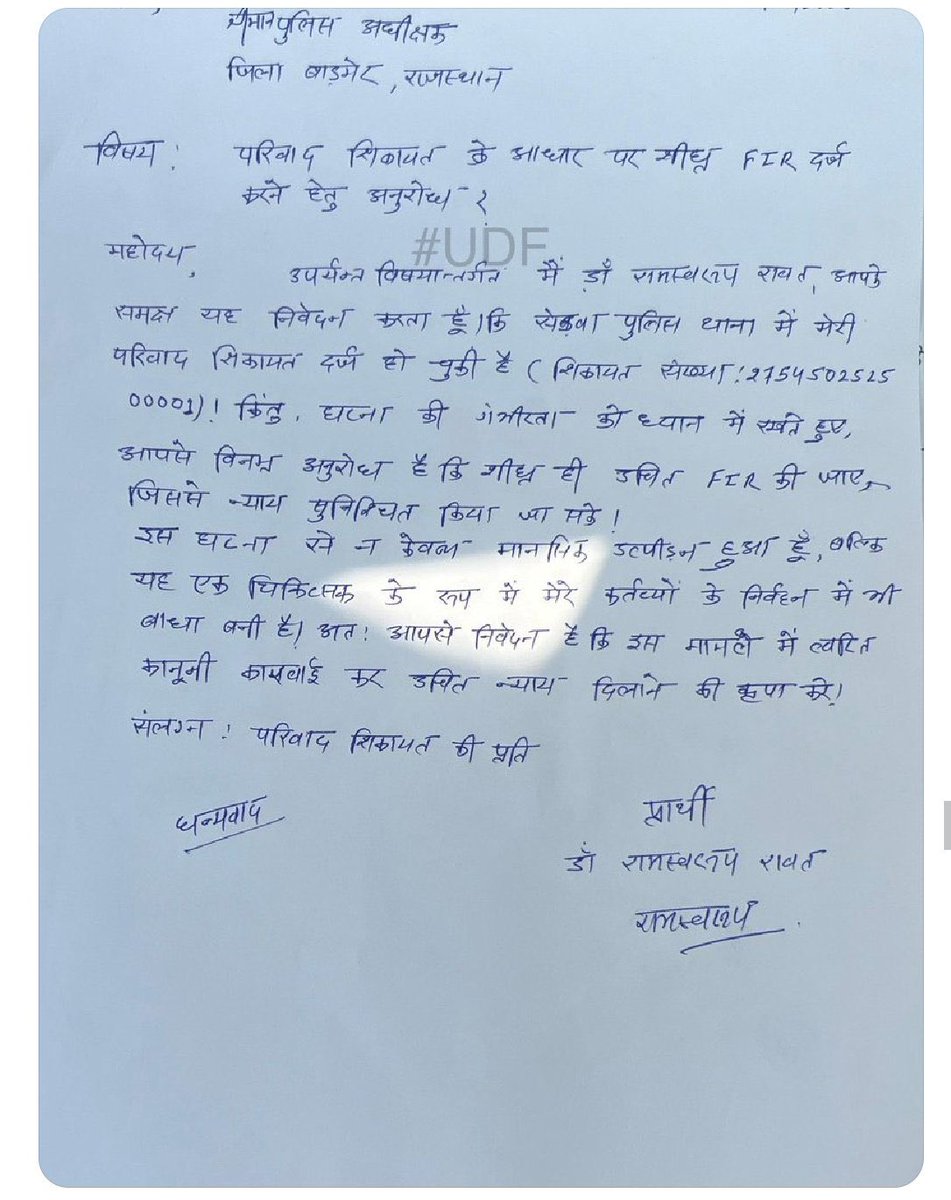 श्रीमान पुलिस अधीक्षक
जिला बाड़मेर, राजस्थान
विषय: परिवाद शिकायत के आधार पर शीघ्र FIR दर्ज
करने हेतु अनुरोध-?
#UDF
महोदय,
उपर्यन्त विषयान्तर्गत मैं डॉ रामस्वरूप रावत, आपके
समक्ष यह निवेदन करता हूँ।कि सेड़वा पुलिस थाना में मेरी
परिवाद शिकायत दर्ज हो चुकी है (शिकायत संख्या:2754502525
00001)! किंतु, घटना की गंभीरता को ध्यान में रखते हुए,
आपसे विनम्र अनुरोध है कि शीघ्र ही उचित FIR की जाए,
जिससे न्याय सुनिश्चित किया जा सके!
इस घटना से न केवल मानसिक उत्पीड़न हुआ हूँ, बल्कि
यह एक चिकित्सक के रूप में मेरे कर्तव्यों के निर्वहन में भी
बाधा बनी है। अतः आपसे निवेदन है कि इस मामले में त्वरित
कानूनी कार्यवाई कर उचित न्याय दिलाने की कृपा करे।
संलग्न: परिवाद शिकायत की प्रति
धन्यवाद
प्रार्थी
डॉ रामस्वरूप रावत
रामस्वरूप